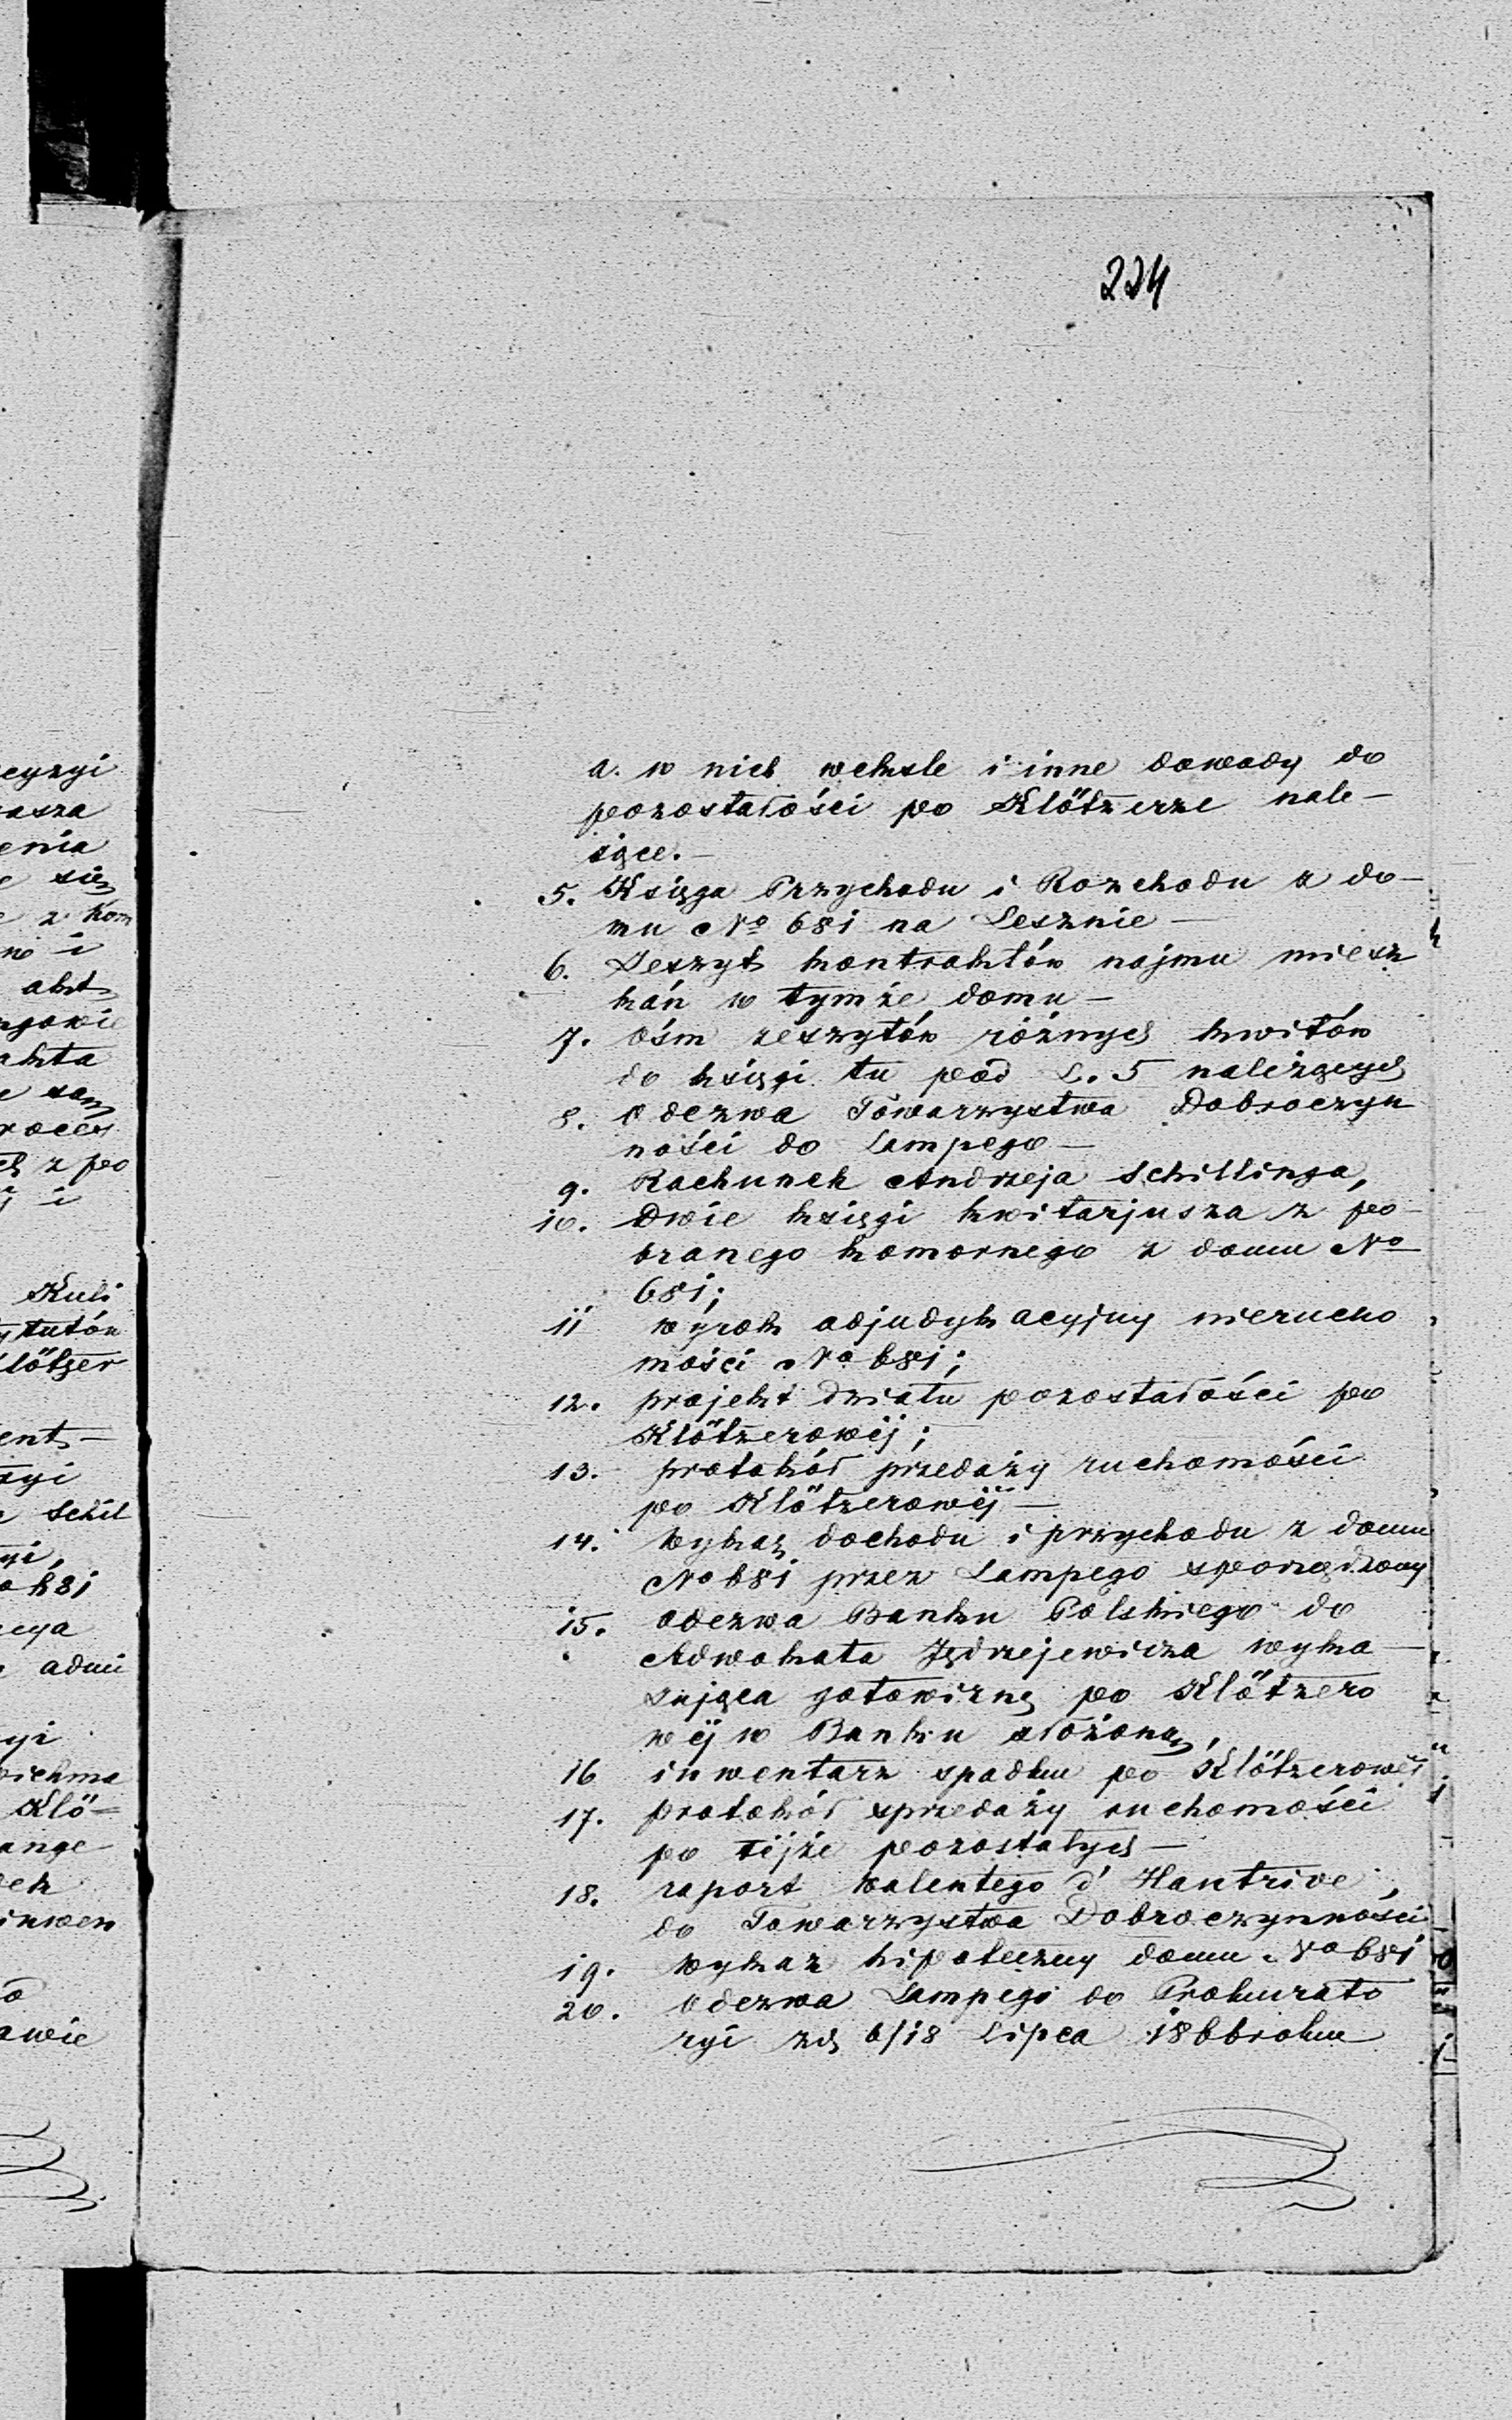 224
a. w nich weksle i inne dowody do
pozostałości po Klötzerze nale-
żące.-
5. Księga Przychodu i Rozchodu z do-
mu No 681 na Lesznie -
6. Zeszyt kontraktów najmu miesz
kań w tymże domu -
7. ośm zeszytów różnych kwitów
do księgi tu pod L. 5 należących
8. Odezwa Towarzystwa Dobroczyn
ności do Lampego -
9. Rachunek Andrzeja Schillinga,
10. Dwie księgi kwitarjusza z po-
branego komornego z domu No
681;
11 wyrok adjudykacyjny nierucho
mości No 681;
12. projekt działu pozostałości po
Klötzerowéj;
13. protokół przedaży ruchomości
po Klötzerowéj -
14. Wykaz dochodu i przychodu z domu
No 681 przez Lampego sporządzony
15. odezwa Banku Polskiego do
Adwokata Jędrzejewicza wyka-
zująca gotowiznę po Klötzero
wéj w Banku złożoną,
16 inwentarz spadku po Klötzerowéj
17. protokół sprzedaży ruchomości
po téjże pozostałych -
18. raport Walentego d'Hantrive,
do Towarzystwa Dobroczynności
19. Wykaz hipoteczny domu No 681
20. Odezwa Lampego do Prokurato
ryi zd 6/18 Lipca 1866 roku
eyzyi
asza
enia
się
z kom
i
akt
akta
są
z po
i
Kuli
tytutów
lötzer
ent-
zyi
Schil
yi,
o 681
cya
admi
yi
Klö-
ange
ek
inwen
awie